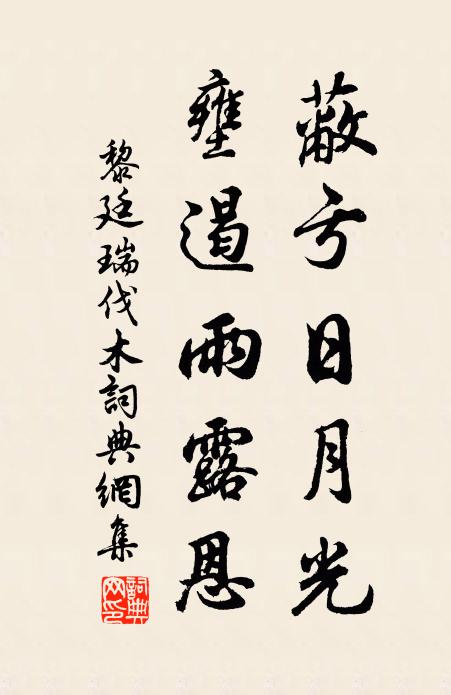 蔽亏日月光
壅遏雨露恩
黎廷瑞伐木詞典網集
詞典网印